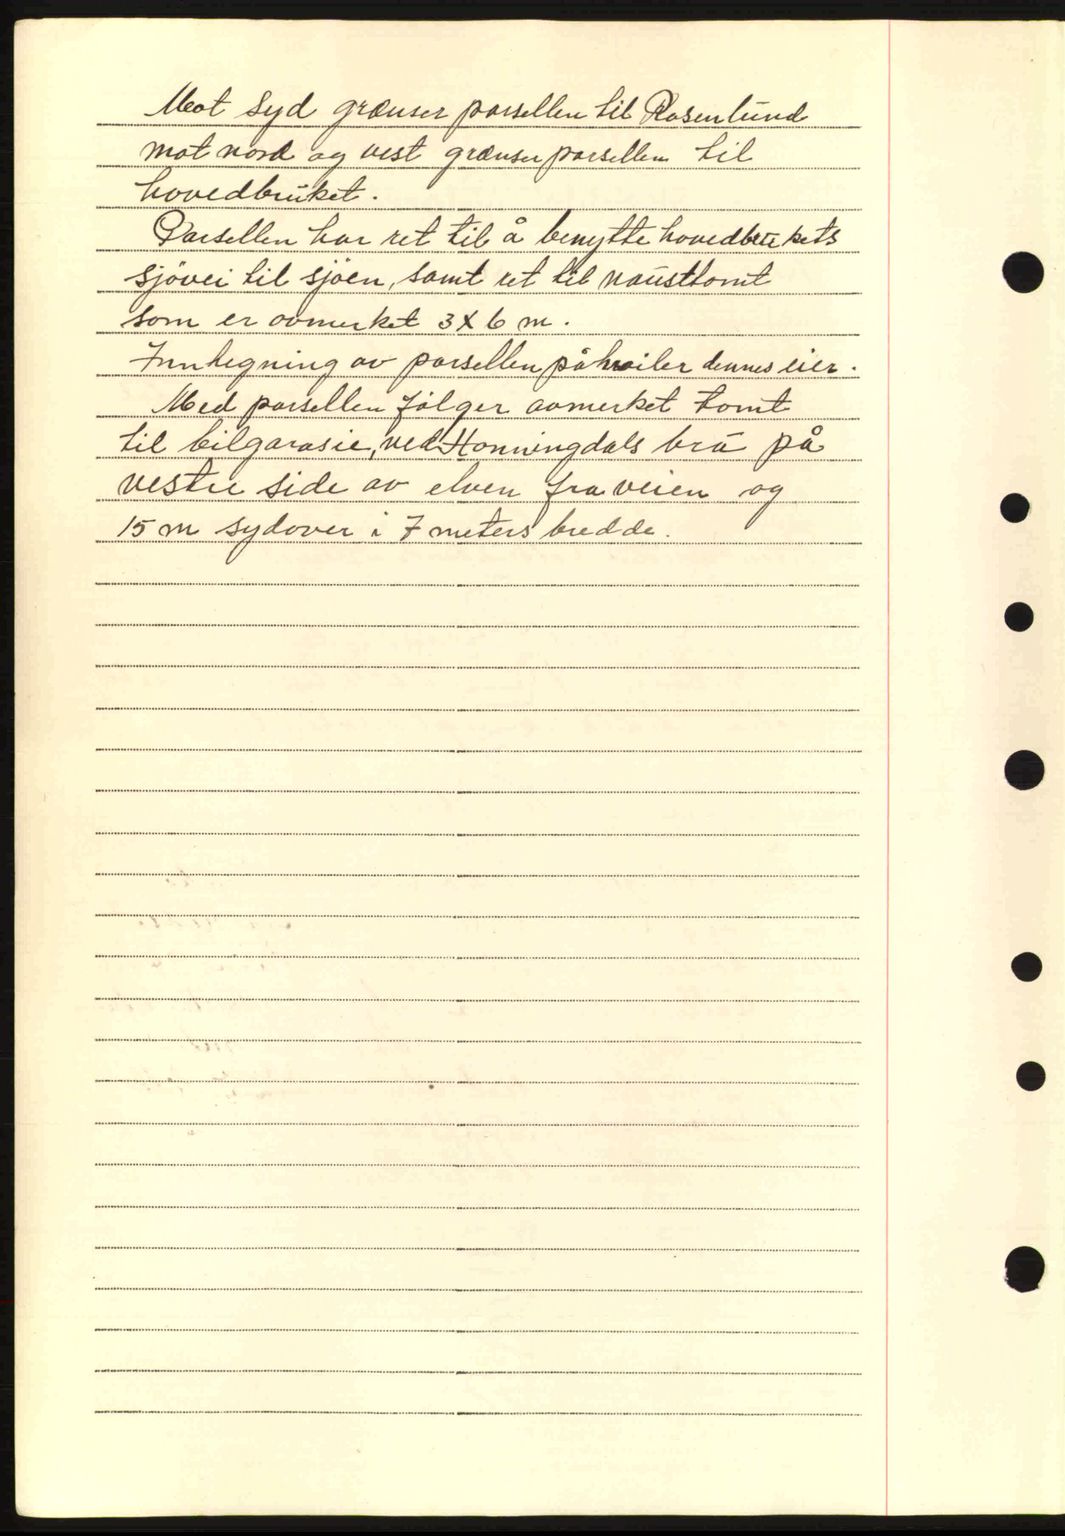 Mot syd grænser parsellen til Rosenlund
mot nord og vest grænser parsellen til
hovedbruket.
Parsellen har ret til å benytte hovedbrukets
sjövei til sjöen, samt ret til nausttomt
som er avmerket 3 X 6 m.
Innhegning av parsellen påhviler dennes eier.
Med parsellen følger avmerket tomt
til bilgarasie, ved Honningdals bru på
vestre side av elven fra veien og
15 m sydover i 7 meters bredde.